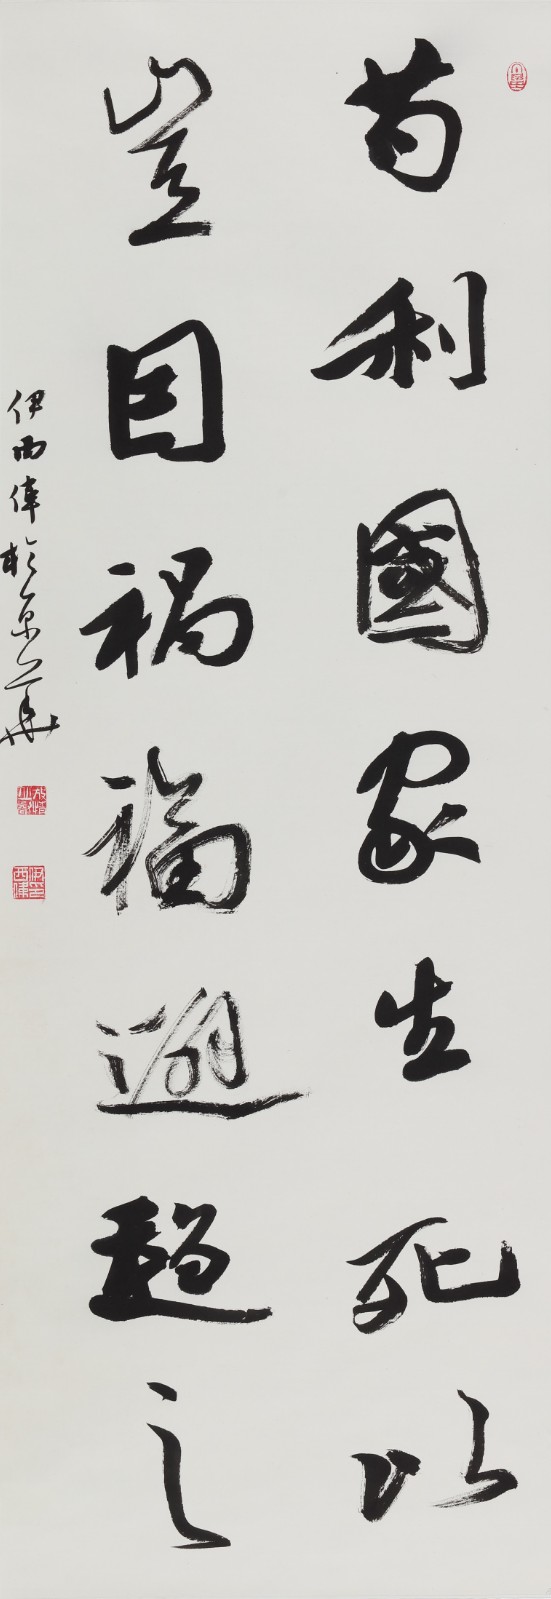 苟利國家生死以
豈因禍福避趨之
伊西偉於京華